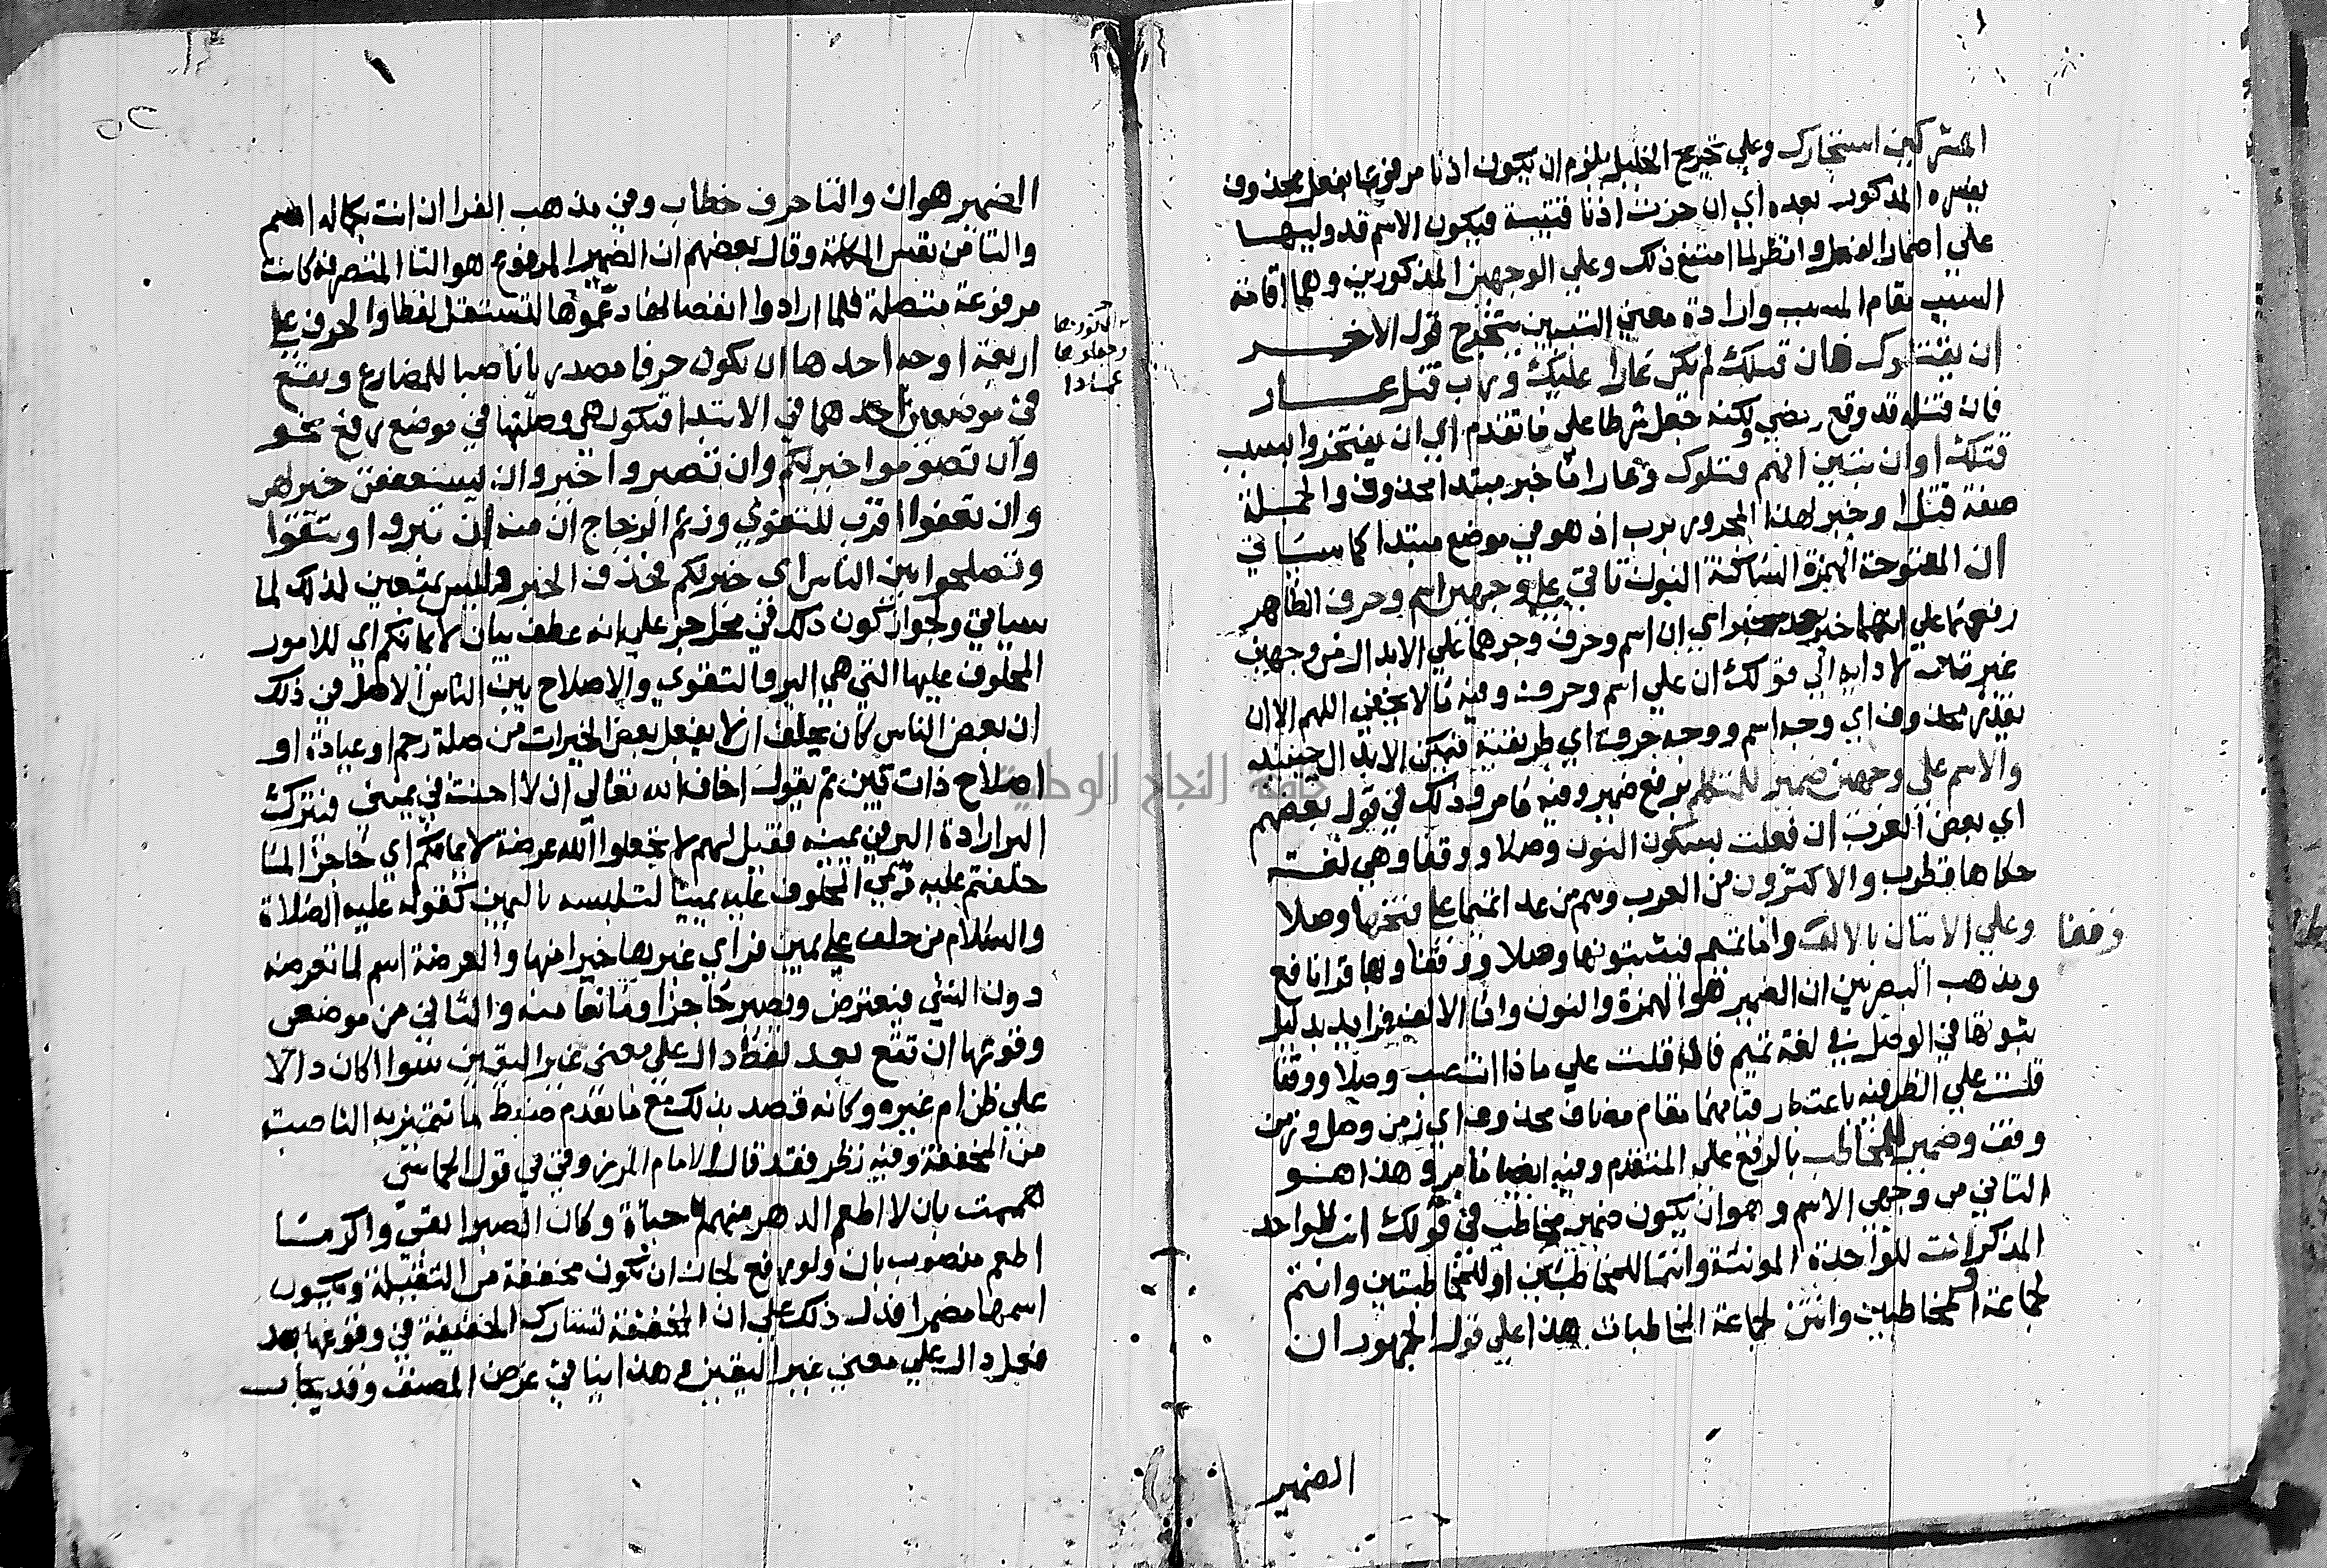 المشركين استجارك وعلي تخريج الخليل يلزم ان يكون اذنا مرفوعا بفعل محذوف
يفسره المذكور بعده اي ان حزت اذنا قتيبة فيكون الاسم قد وليها
علي اضمار الفعل وانظر لما امتنع ذلك وعلي الوجهين المذكورين وهما اقامة
السبب مقام المسبب وارادة معني التبيين يتخرج قول الاخر
ان يقتلوك فان قتلك لم يكن عارا عليك ورب قتل عار
فان قتله قد وقع ومضي ولكنه جعل شرطا علي ما تقدم اي ان يفتخروا بسبب
قتلك او ان يتبين انهم قتلوك وعار اما خبر مبتدا محذوف والجملة
صفة قتل او خبر لهذا المجرور برب اذ هو في موضع مبتدا كما سياتي
ان المفتوحة الهمزة الساكنة النون تاتي علي وجهين اسم وحرف الظاهر
رفعهما علي انهما خبر بعد خبر اي ان اسم وحرف وجرهما علي الابدال من وجهين
غير ثابت لادايه الي قولك ان علي اسم وحرف وفيه ما لا يخفي اللهم الا ان
يقدر محذوف اي وجه اسم ووجه حرف اي طريقته فيمكن الابدال حينئذ
والاسم علي وجهين ضمير للمتكلم برفع ضمير وفيه ما مر وذلك في قول بعضهم
اي بعض العرب ان فعلت بسكون النون وصلا ووقفا وهي لغة
حكاها قطرب والاكثرون من العرب وهم من عدا تميما علي فتحها وصلا
وعلي الاتيان بالالف واما تميم فيثبتونها وصلا ووقفا وبها قرا نافع
وقفا
ومذهب البصريين ان الضمير هو الهمزة والنون واما الالف فزايد بدليل
ثبوتها في الوصل في لغة تميم فان قلت علي ماذا انتصب وصلا ووقفا
قلت علي الظرفية باعتبار قيامهما مقام مضاف محذوف اي زمن وصل وزمن
وقف وضمير للمخاطب بالرفع علي المتقدم وفيه ايضا ما مر وهذا هو
الثاني من وجهي الاسم وهو ان يكون ضمير مخاطب في قولك انت للواحد
المذكر انت للواحدة المونثة وانتما للمخاطبين او للمخاطبتين وانتم
لجماعة المخاطبين وانتن لجماعة المخاطبات هذا علي قول الجمهور ان
الضمير
الضمير هو ان والتا حرف خطاب وفي مذهب الفرا ان انت بكماله اسم
والتا من نفس الكلمة وقال بعضهم ان الضمير المرفوع هو التا المتصرفة كانت
مرفوعة متصلة فلما ارادوا انفصالها دعموها لتستقل لفظا والحرف علي
اربعة اوجه احدها ان يكون حرفا مصدريا ناصبا للمضارع ويقع
في موضعين احدهما في الابتدا فيكون هي وصلتها في موضع رفع نحو
وان تصوموا خير لكم وان تصبروا خير وان يستعففن خير لهن
وان تعفوا اقرب للتقوي وزعم الزجاج ان منه ان تبروا وتتقوا
وتصلحوا بين الناس اي خير لكم فحذف الخبر وليس بمتعين لذلك لما
سياتي ولجواز كون ذلك في محل جر علي انه عطف بيان لايمانكم اي للامور
المحلوف عليها التي هي البر والتقوي والاصلاح بين الناس الاصل في ذلك
ان بعض الناس كان يحلف ان لا يفعل بعض الخيرات من صلة رحم او عبادة او
اصلاح ذات بين ثم يقول اخاف الله تعالي ان لا احنث في يميني فيترك
البر ارادة البر في يمينه فقيل لهم لا تجعلوا الله عرضة لايمانكم اي حاجزا لما
حلفتم عليه وسمي المحلوف عليه يمينا لتلبسه باليمين كقوله عليه الصلاة
والسلام من حلف علي يمين فراي غيرها خيرا منها والعرضة اسم لما تعرضه
دون الشي فيعترض ويصير حاجزا ومانعا منه والثاني من موضعي
وقوعها ان تقع بعد لفظ دال علي معني غير اليقين سوا اكان دالا
علي ظن ام غيره وكانه قصد بذلك مع ما تقدم ضبط ما تتميز به الناصبة
من المخففة وفيه نظر فقد قال الامام المرزوقي في قول الحماسي
هممت بان لا اطعم الدهر منهم حياة وكان الصبر ابقي واكرما
اطعم منصوب بان ولو رفع لجاز ان تكون مخففة من الثقيلة ويكون
اسمها مضمرا فدل ذلك علي ان المخففة تشارك الخفيفة في وقوعها بعد
فعل دال علي معني غير اليقين وهذا ينافي غرض المصنف وقد يجاب
وجعلوها
عمادا